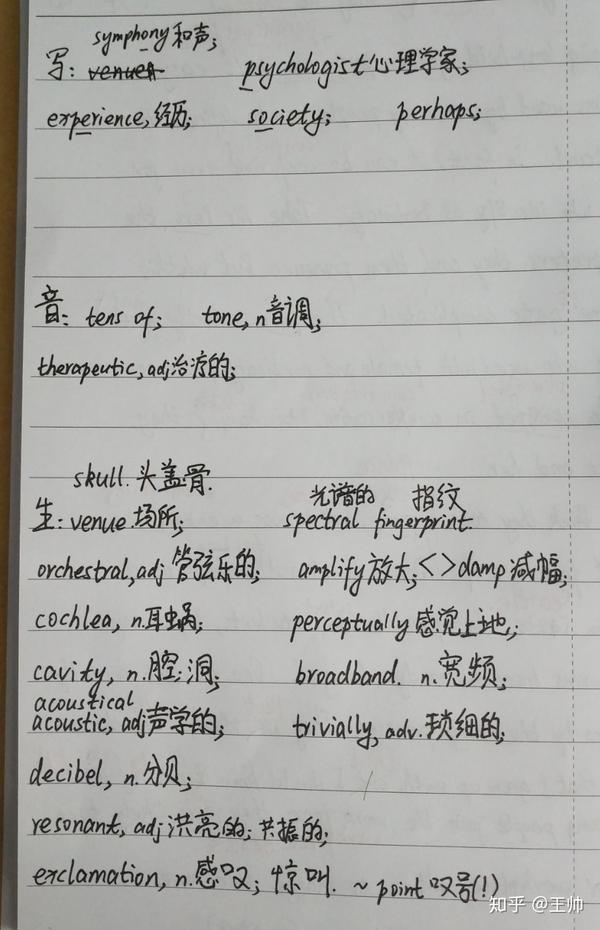 symphony 和声;
写: venues psychologist 心理学家;
experience, 经历; society; perhaps;
音: tens of; tone, n 音调;
therapeutic, adj 治疗的;
skull. 头盖骨. 光谱的 指纹
生: venue. 场所; spectral fingerprint.
orchestral, adj 管弦乐的; amplify 放大; <> damp 减幅;
cochlea, n. 耳蜗; perceptually 感觉上地,;
cavity, n. 腔; 洞; broadband. n. 宽频;
acoustical
acoustic, adj 声学的; trivially, adv. 琐细的;
decibel, n. 分贝;
resonant, adj 洪亮的; 共振的;
exclamation, n. 感叹; 惊叫. ~ point 叹号(!)
知乎 @王帅